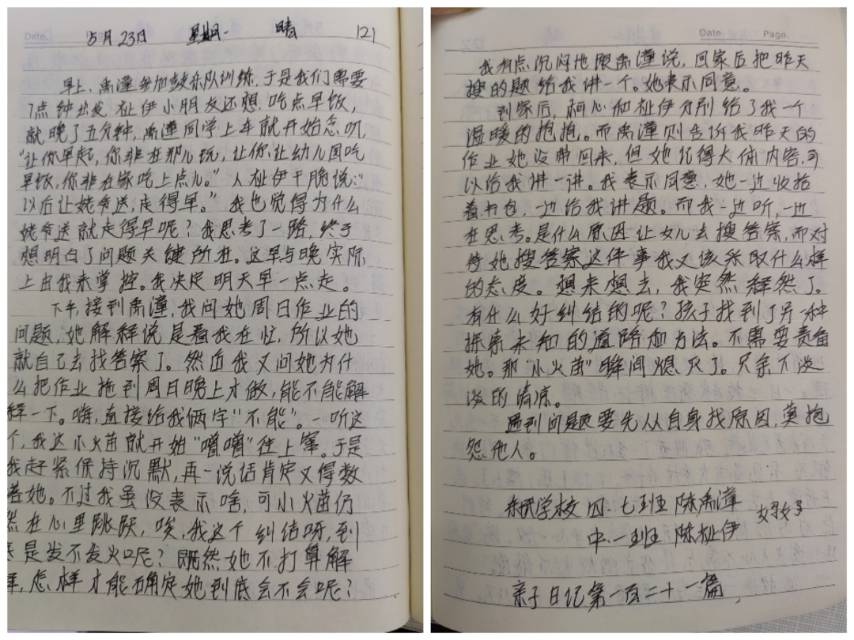 Date.
5月23日 星期一 晴 121
早上，禹潼参加鼓乐队训练，于是我们需要
7点钟出发 祉伊小朋友还想吃点早饭，
就晚了五分钟，禹潼同学上车就开始怠叽
“让你早起，你非在那儿玩，让你让幼儿园吃
早饭，你非在家吃上点儿。”人祉伊干脆说：“
以后让姥爷送，走得早。”我也觉得为什么
姥爷送就走得早呢？我思考了一路，终于
想明白了问题关键所在。这早与晚实际
上由我来掌控。我决定明天早一点走。
下午，接到禹潼，我问她周日作业的
问题，她解释说是看我在忙，所以她
就自己去找答案了。然后我又问她为什
么把作业拖到周日晚上才做，能不能解
释一下。嗨，直接给我俩字“不能”。一听这
个，我这小火苗就开始“噌噌”往上窜。于是
我赶紧保持沉默，再一说话肯定又得数
落她。不过我虽没表示啥，可小火苗仍
然在心里跳跃，唉，我这个纠结呀，到
底是发不发火呢？既然她不打算解
释，怎样才能确定她到底会不会呢？
Date. Page.
我有点沉闷地跟禹潼说，回家后把昨天
搜的题给我讲一个。她表示同意。
到家后，祉伊分别给了我一个
温暖的抱抱。而禹潼则告诉我昨天的
作业她没带回来，但她记得大体内容，可
以给我讲一讲。我表示同意，她一边收拾
着书包，一边给我讲题。而我一边听，一边
在思考。是什么原因让女儿去搜答案，而对
待她搜答案这件事我又该采取什么样
的态度。想来想去，我突然释然了。
有什么好纠结的呢？孩子找到了另一种
探索未知的道路和方法。不需要责备
她。那“小火苗”瞬间熄灭了。只余下淡
淡的清凉。
遇到问题要先从自身找原因，莫抱
怨他人。
学校四·七班 陈禹潼
中·一班 陈祉伊
亲子日记第一百二十一篇